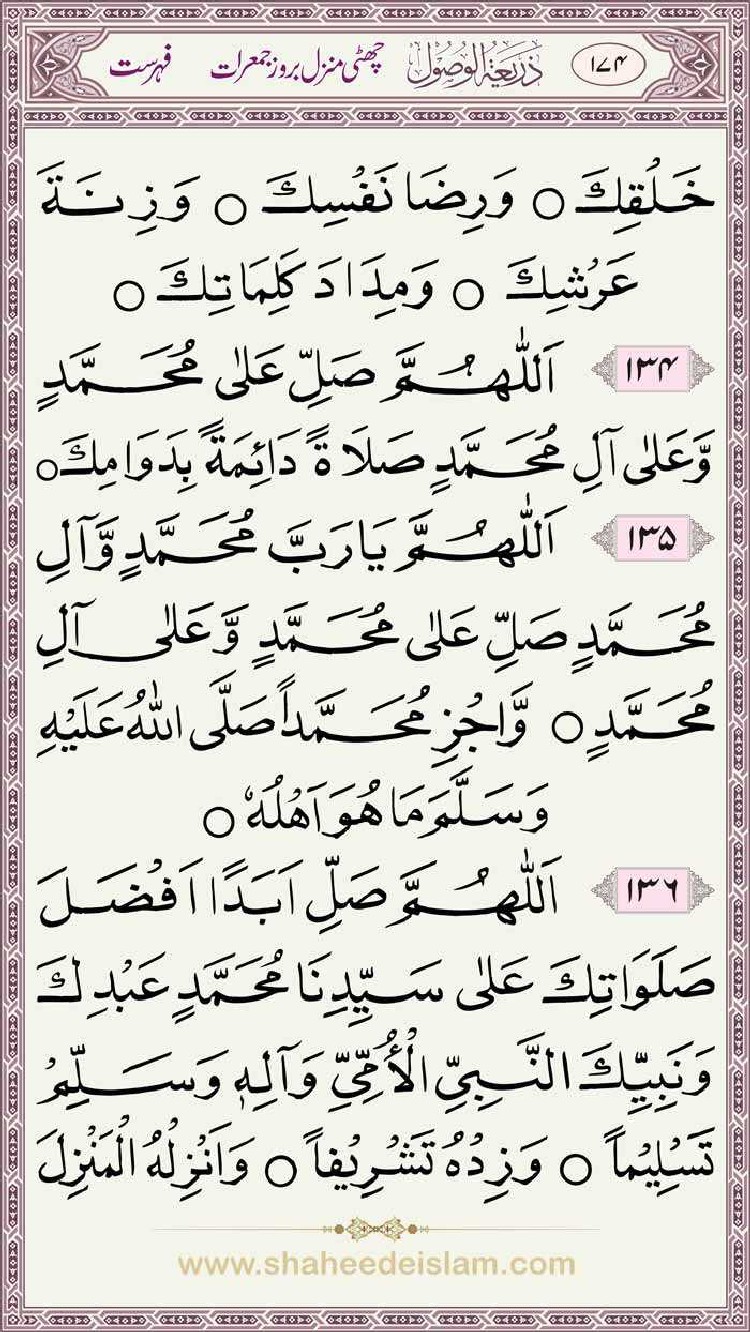 ۱۷۴ ذَرِیعَۃُ الوُصُول چھٹی منزل بروز جمعرات فہرست
خَلْقِكَ ○ وَرِضَا نَفْسِكَ ○ وَزِنَةَ
عَرْشِكَ ○ وَمِدَادَ كَلِمَاتِكَ ○
۱۳۴ اَللّٰهُمَّ صَلِّ عَلٰى مُحَمَّدٍ
وَّعَلٰى آلِ مُحَمَّدٍ صَلَاةً دَائِمَةً بِدَوَامِكَ ○
۱۳۵ اَللّٰهُمَّ يَارَبَّ مُحَمَّدٍ وَّآلِ
مُحَمَّدٍ صَلِّ عَلٰى مُحَمَّدٍ وَّعَلٰى آلِ
مُحَمَّدٍ ○ وَّاجْزِ مُحَمَّداً صَلَّى اللّٰهُ عَلَيْهِ
وَسَلَّمَ مَا هُوَ اَهْلُهٗ ○
۱۳۶ اَللّٰهُمَّ صَلِّ اَبَدًا اَفْضَلَ
صَلَوَاتِكَ عَلٰى سَيِّدِنَا مُحَمَّدٍ عَبْدِكَ
وَنَبِيِّكَ النَّبِيِّ الْأُمِّيِّ وَآلِهٖ وَسَلِّمْ
تَسْلِيْماً ○ وَزِدْهُ تَشْرِيْفاً ○ وَاَنْزِلْهُ الْمَنْزِلَ
www.shaheedeislam.com